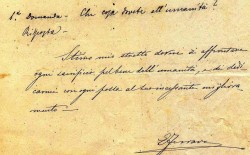 1ª Domanda - Che cosa dovete all'umanità?
Risposta -
Stimo mio stretto dovere di affrontare
ogni sacrificio pel bene dell'umanità, e de dedi-
carmi con ogni possa al suo incessante migliora-
mento -